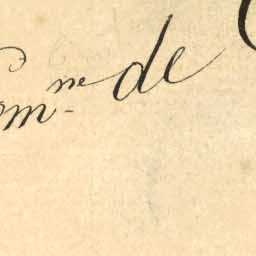 om.ne de